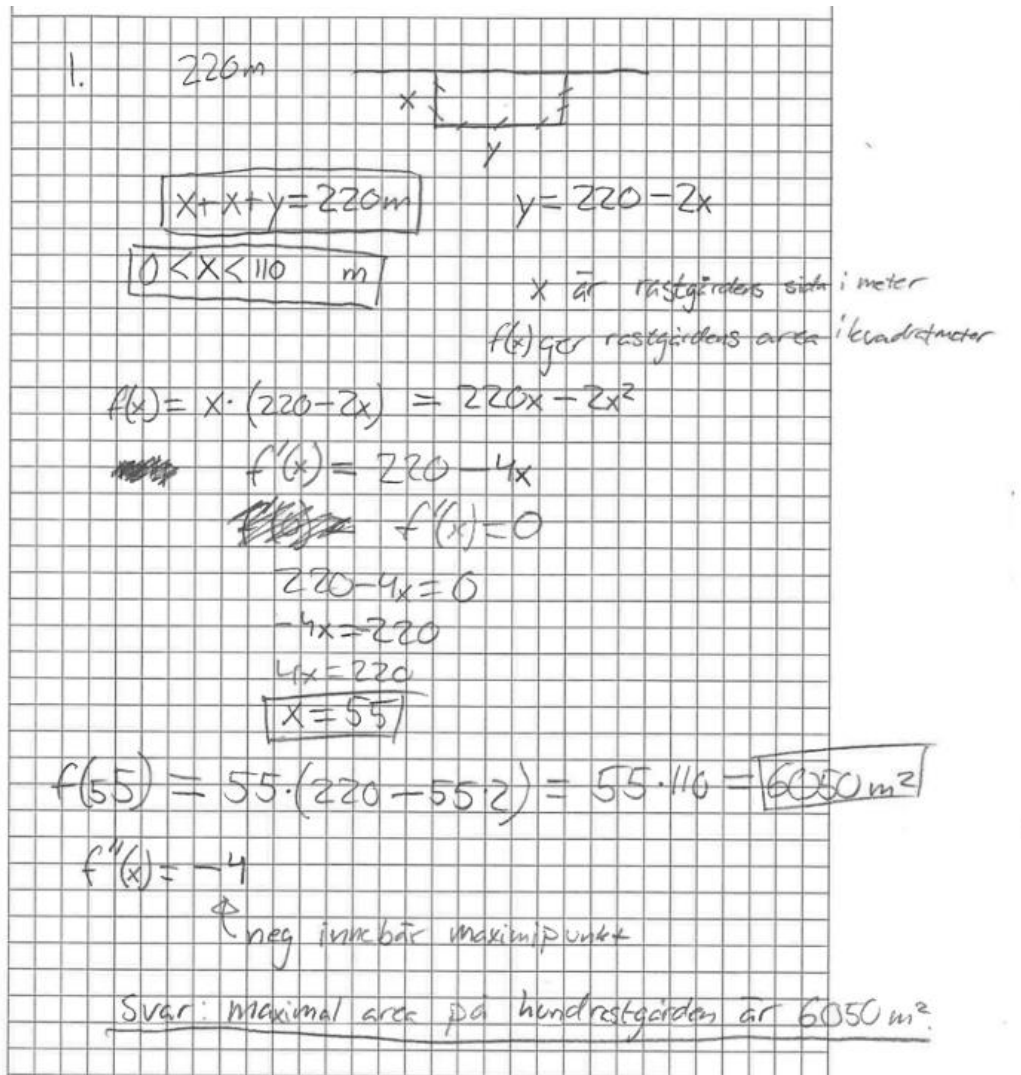 1. 220m
x
y
x+x+y=220m y=220-2x
0<x<110 m
x är rastgårdens sida i meter
f(x) ger rastgårdens area i kvadratmeter
f(x)= x·(220-2x) = 220x-2x²
f'(x) = 220-4x
f'(x)=0
220-4x=0
-4x=-220
4x=220
x=55
f(55) = 55·(220-55·2) = 55·110 = 6050 m²
f''(x)= -4
neg innebär maximipunkt
Svar: maximal area på hundrastgården är 6050 m².